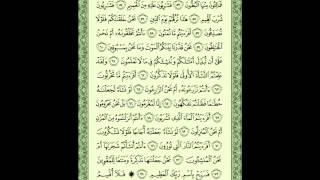 فَمَالِـُٔونَ مِنْهَا ٱلْبُطُونَ ٥٣ فَشَٰرِبُونَ عَلَيْهِ مِنَ ٱلْحَمِيمِ ٥٤ فَشَٰرِبُونَ
شُرْبَ ٱلْهِيمِ ٥٥ هَٰذَا نُزُلُهُمْ يَوْمَ ٱلدِّينِ ٥٦ نَحْنُ خَلَقْنَٰكُمْ فَلَوْلَا
تُصَدِّقُونَ ٥٧ أَفَرَءَيْتُم مَّا تُمْنُونَ ٥٨ ءَأَنتُمْ تَخْلُقُونَهُۥٓ أَمْ نَحْنُ
ٱلْخَٰلِقُونَ ٥٩ نَحْنُ قَدَّرْنَا بَيْنَكُمُ ٱلْمَوْتَ وَمَا نَحْنُ بِمَسْبُوقِينَ ٦٠
عَلَىٰٓ أَن نُّبَدِّلَ أَمْثَٰلَكُمْ وَنُنشِئَكُمْ فِى مَا لَا تَعْلَمُونَ ٦١ وَلَقَدْ
عَلِمْتُمُ ٱلنَّشْأَةَ ٱلْأُولَىٰ فَلَوْلَا تَذَكَّرُونَ ٦٢ أَفَرَءَيْتُم مَّا تَحْرُثُونَ ٦٣
ءَأَنتُمْ تَزْرَعُونَهُۥٓ أَمْ نَحْنُ ٱلزَّٰرِعُونَ ٦٤ لَوْ نَشَآءُ لَجَعَلْنَٰهُ
حُطَٰمًا فَظَلْتُمْ تَفَكَّهُونَ ٦٥ إِنَّا لَمُغْرَمُونَ ٦٦ بَلْ نَحْنُ مَحْرُومُونَ ٦٧
أَفَرَءَيْتُمُ ٱلْمَآءَ ٱلَّذِى تَشْرَبُونَ ٦٨ ءَأَنتُمْ أَنزَلْتُمُوهُ مِنَ ٱلْمُزْنِ
أَمْ نَحْنُ ٱلْمُنزِلُونَ ٦٩ لَوْ نَشَآءُ جَعَلْنَٰهُ أُجَاجًا فَلَوْلَا تَشْكُرُونَ ٧٠
أَفَرَءَيْتُمُ ٱلنَّارَ ٱلَّتِى تُورُونَ ٧١ ءَأَنتُمْ أَنشَأْتُمْ شَجَرَتَهَآ أَمْ
نَحْنُ ٱلْمُنشِـُٔونَ ٧٢ نَحْنُ جَعَلْنَٰهَا تَذْكِرَةً وَمَتَٰعًا لِّلْمُقْوِينَ ٧٣
فَسَبِّحْ بِٱسْمِ رَبِّكَ ٱلْعَظِيمِ ٧٤ ۞ فَلَآ أُقْسِمُ